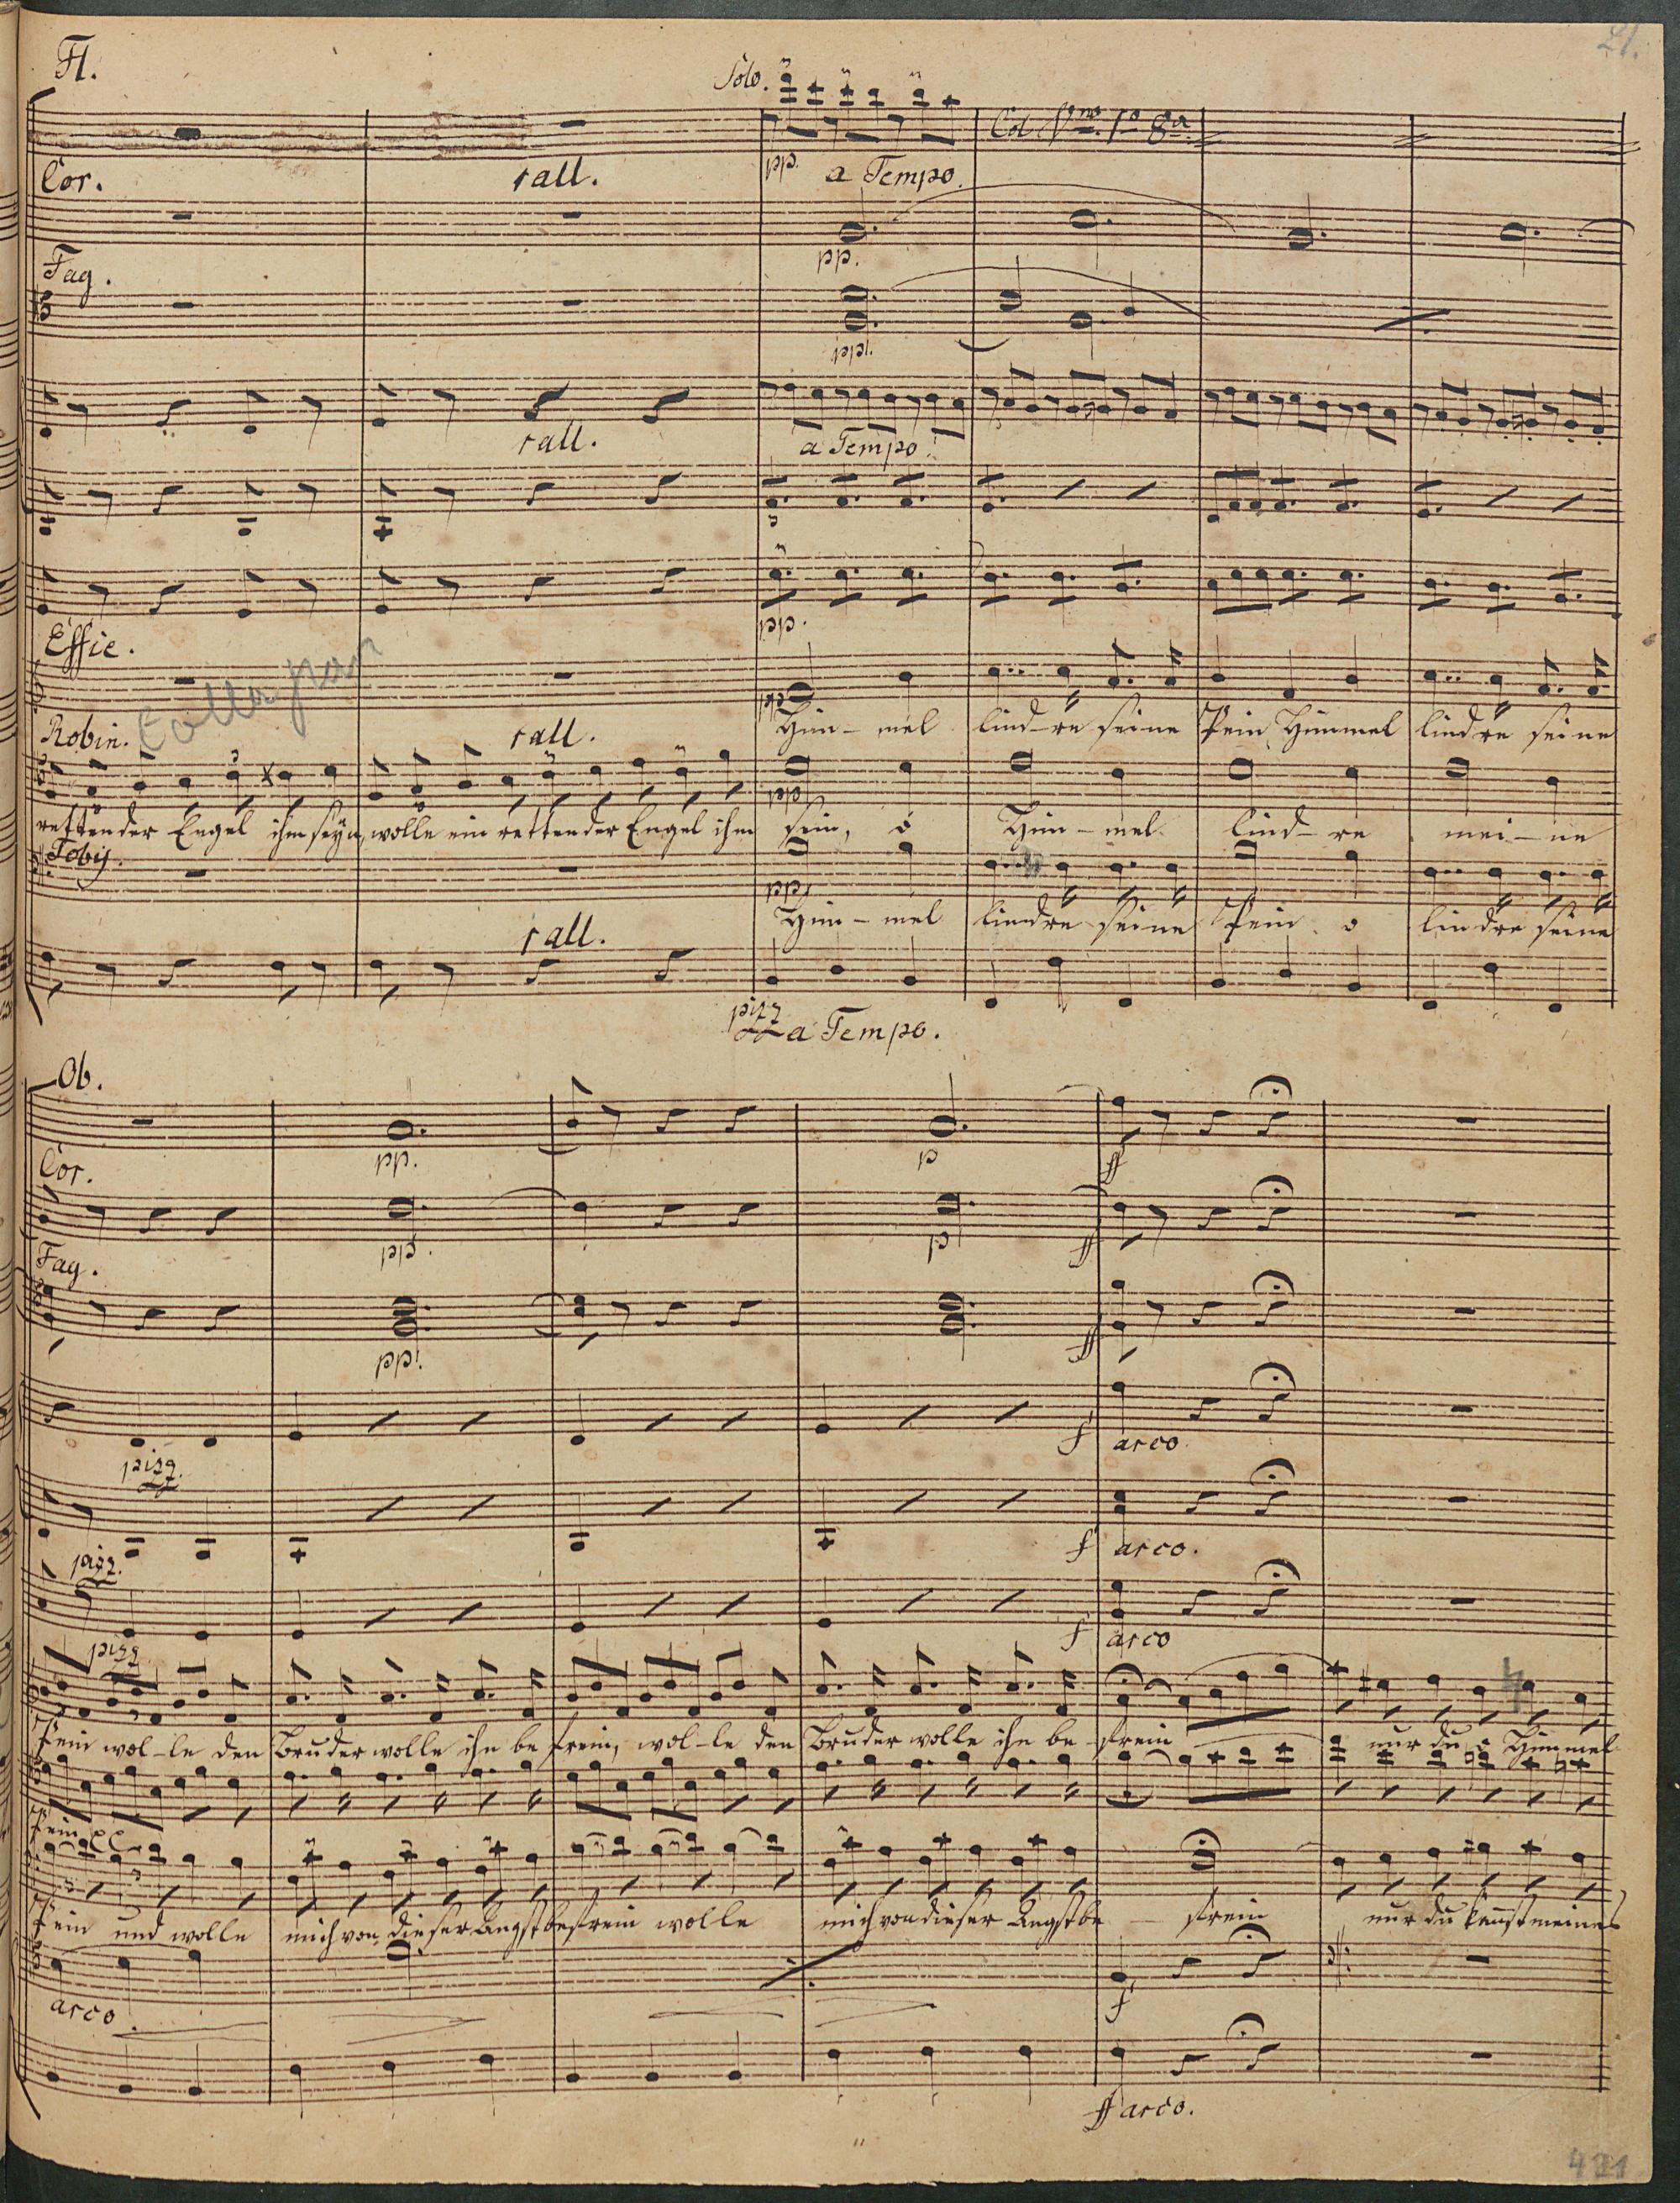 21.
Fl.
Solo.
Col Vno. 1o 8a
pp. a Tempo.
Cor.
rall.
pp.
Fag.
pp.
rall.
a Tempo
pp.
Effie.
colla par
pp
Him - mel lind - re seine Pein, Himmel lindre seine
Robin.
rall.
pp
rettender Engel ihm seyn, wolle ein rettender Engel ihm sein, o Him - mel lind - re mei - ne
Toby.
pp
Him - mel lindre seine Pein o lindre seine
rall.
pizz
a Tempo.
Ob.
pp.
p
ff
Cor.
pp.
p
ff
Fag.
pp.
ff
f arco
pizz.
f arco.
pizz.
f arco
pizz
Pein wol - le den Bruder wolle ihn be frein, wol - le den Bruder wolle ihn be - frein nur du o Himmel
Pein
Pein und wolle mich von dieser Angst befrein wolle mich von dieser Angst be - frein nur du kennst meines
arco.
f
ff arco.
421